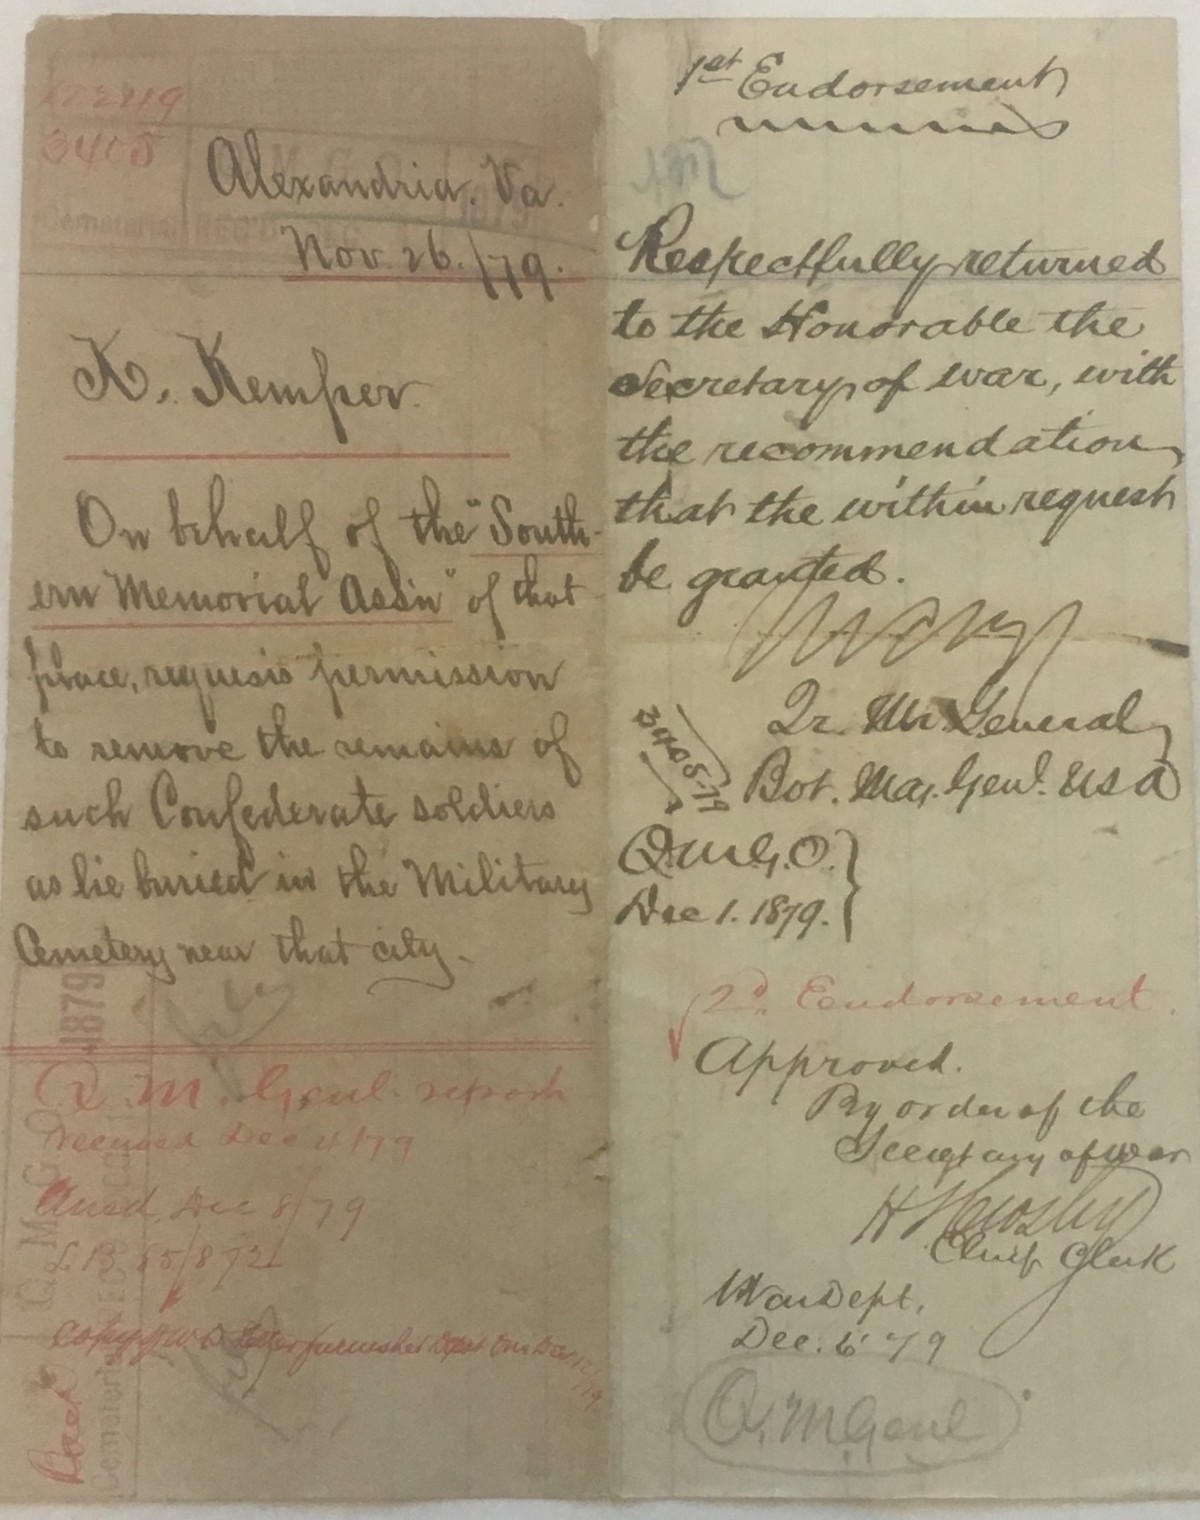 3405
Alexandria. Va.
Nov. 26./79.
K. Kemper.
On behalf of the "South-
ern Memorial Ass'n" of that
place, requests permission
to remove the remains of
such Confederate soldiers
as lie buried in the Military
Cemetery near that city.
Q. M. Genl. report
received Dec 4/79
Ansd. Dec 8/79
L B 85/872
copy
furnished
Recd
1879
Q. M. G. O.
Cemeterial
1st Endorsement
Respectfully returned
to the Honorable the
Secretary of war, with
the recommendation
that the within request
be granted.
Qr. Mr. General,
Bvt. Maj. Genl. USA
3405-79
Q.M.G.O.
Dec 1. 1879.
2d. Endorsement.
Approved.
By order of the
Secretary of war
H T Crosby
Chief Clerk
War Dept,
Dec. 6 '79
Q. M Genl